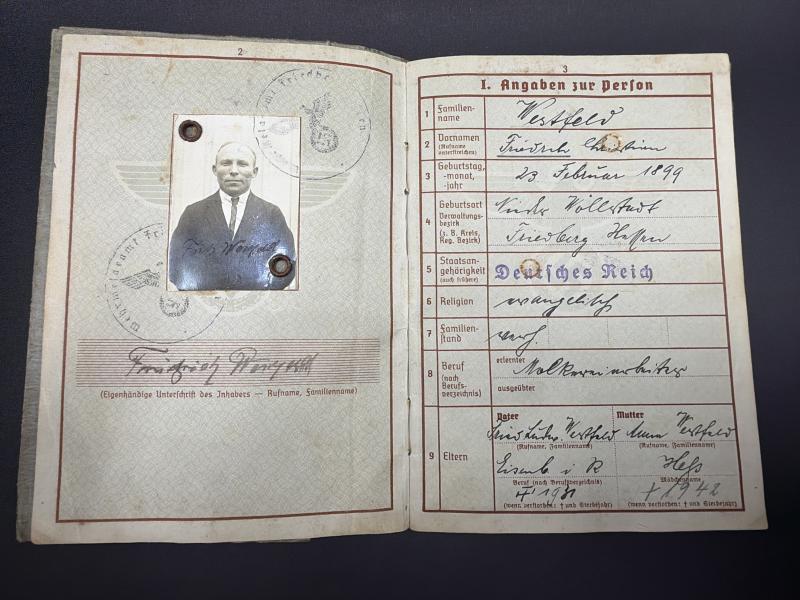 2
Wehrmeldeamt Friedberg
Wehrmeldeamt Fried
Friedrich
(Eigenhändige Unterschrift des Inhabers — Rufname, Familienname)
3
I. Angaben zur Person
1 Familien-
name
Westfeld
2 Vornamen
(Rufname
unterstreichen)
Friedrich Christian
3 Geburtstag,
-monat,
-jahr
23. Februar 1899
4 Geburtsort
Verwaltungs-
bezirk
(z. B. Kreis,
Reg. Bezirk)
Nieder Wöllstadt
Friedberg Hessen
5 Staatsan-
gehörigkeit
(auch frühere)
Deutsches Reich
6 Religion
evangelisch
7 Familien-
stand
verh.
8 Beruf
(nach
Berufs-
verzeichnis)
erlernter
Molkereiarbeiter
ausgeübter
9 Eltern
Vater Mutter
Westfeld Anna Westfeld
(Rufname, Familienname) (Rufname, Familienname)
Eisenb. i. R. Heß
Beruf (nach Berufsverzeichnis) Mädchenname
1931 † 1942
(wenn verstorben: † und Sterbejahr) (wenn verstorben: † und Sterbejahr)